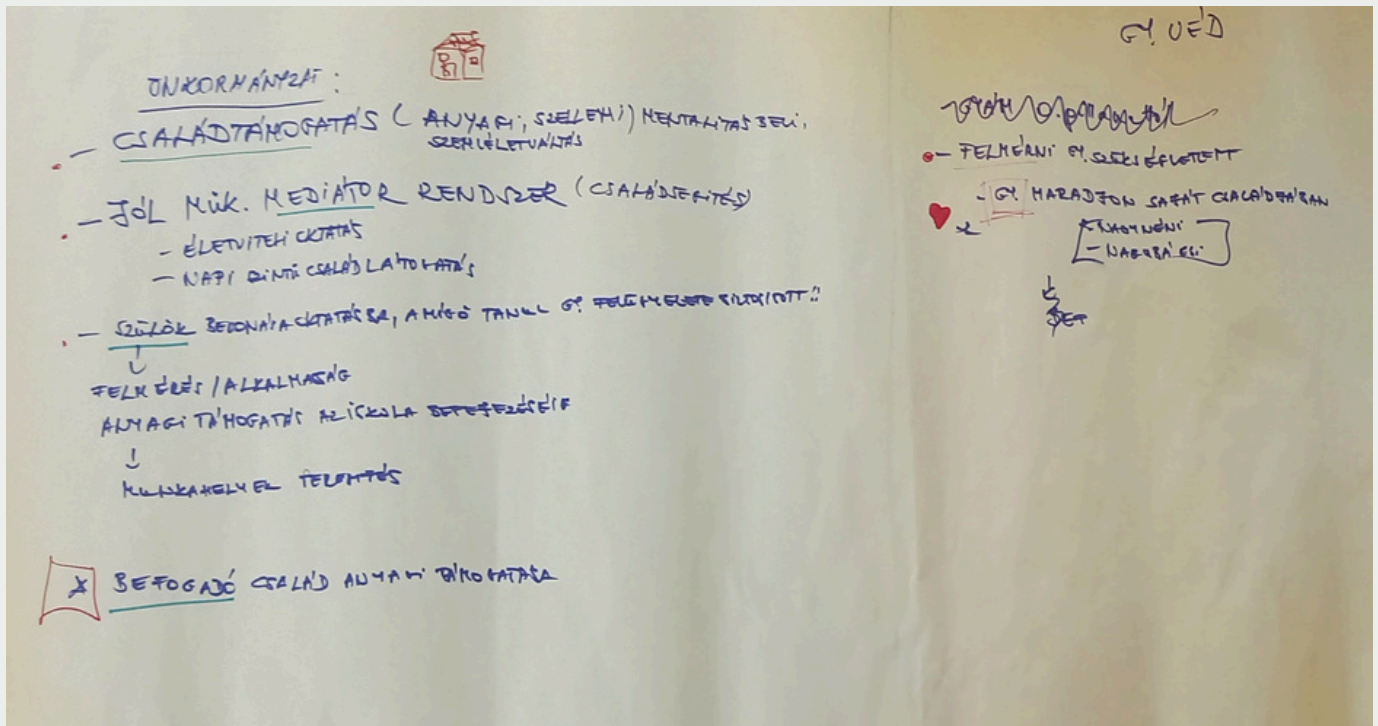 ÖNKORMÁNYZAT:
- CSALÁDTÁMOGATÁS (ANYAGI, SZELLEMI) MENTALITÁSBELI,
SZEMLÉLETVÁLTÁS
- JÓL MŰK. MEDIÁTOR RENDSZER (CSALÁDSEGÍTÉS)
- ÉLETVITELI OKTATÁS
- NAPI SZINTŰ CSALÁDLÁTOGATÁS
- SZÜLŐK BEVONÁSA OKTATÁSBA, AMÍG Ő TANUL GY. FELÜGYELETE BIZTOSÍTOTT!!
FELMÉRÉS / ALKALMASSÁG
ANYAGI TÁMOGATÁS AZ ISKOLA BEFEJEZÉSÉIG
MUNKAHELYEK TEREMTÉS
x BEFOGADÓ CSALÁD ANYAGI TÁMOGATÁSA
GY. VÉD
- FELMÉRNI GY. SZÜKSÉGLETEIT
- GY. MARADJON SAJÁT CSALÁDJÁBAN
- NAGYNÉNI
- NAGYBÁCSI